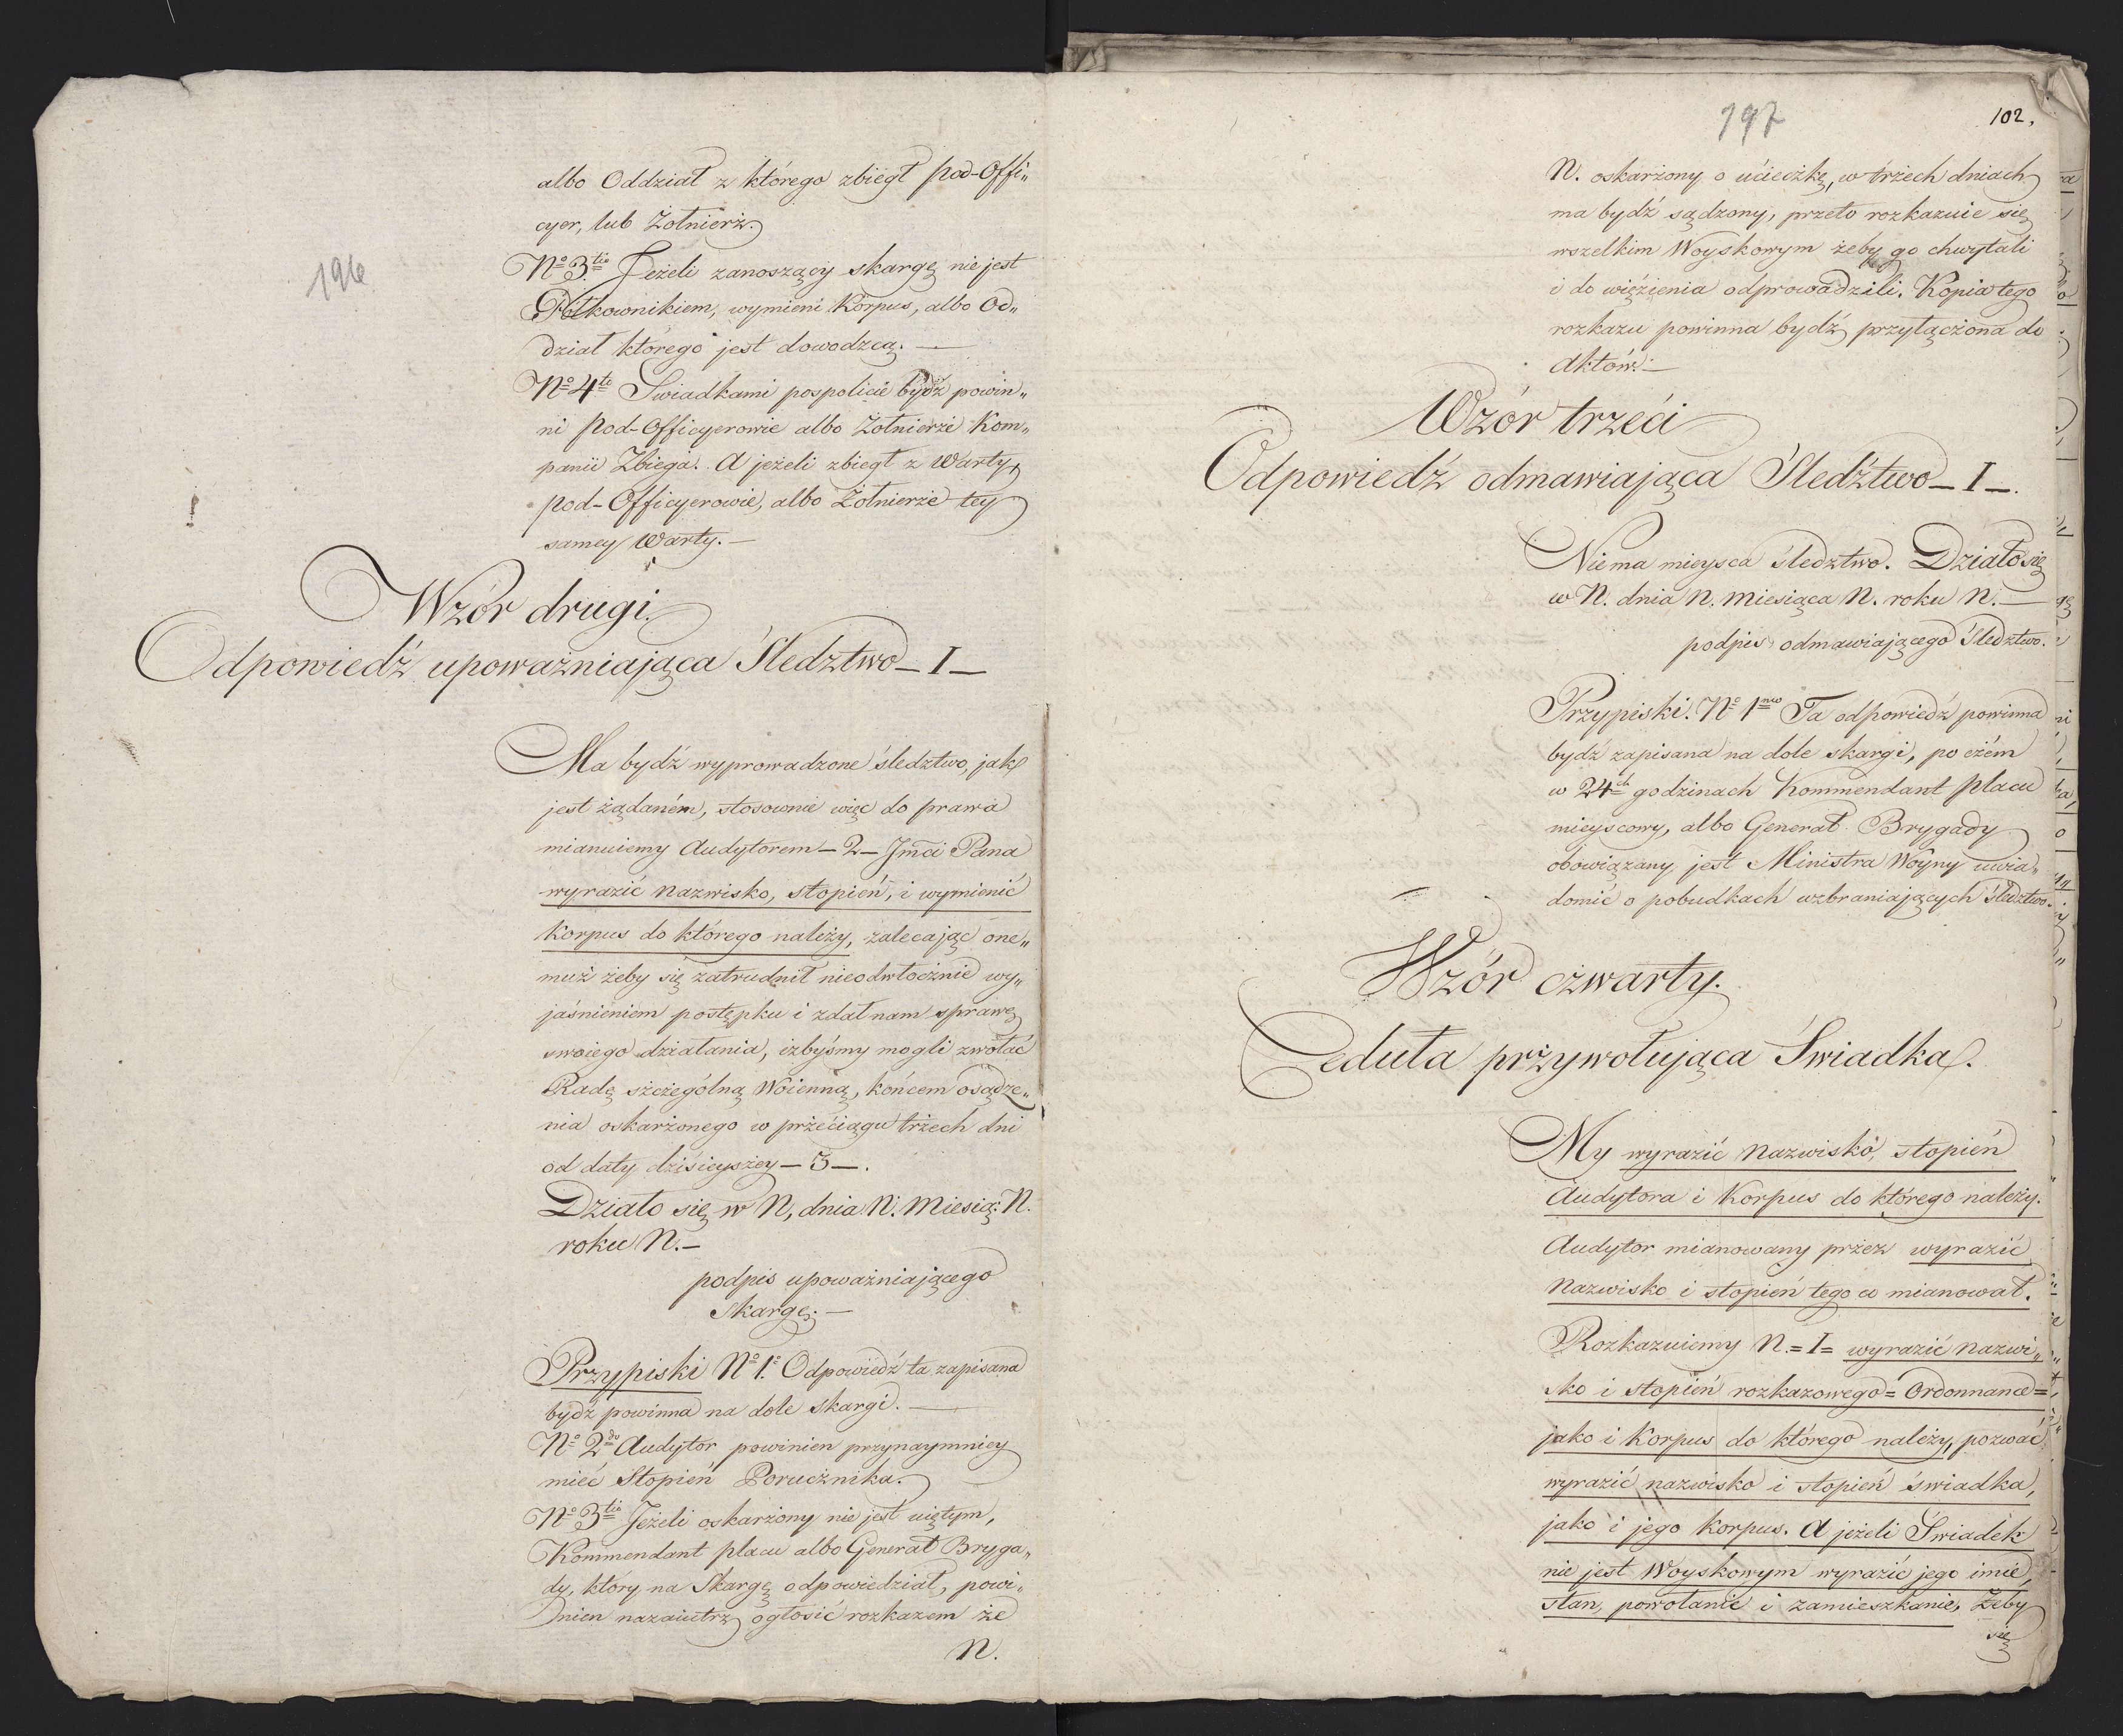 albo Oddział z którego zbiegł pod-Offi„
cyer, lub Żołnierz.
196
No 3tio Jeżeli zanoszący skargę nie jest
Półkownikiem, wymieni Korpus, albo Od„
dział którego jest dowodzcą. —
No 4to Swiadkami pospolicie bydź powin„
ni pod-Officyerowie albo Żołnierże Kom„
panii Zbiega. A jeżeli zbiegł z Warty,
pod-Officyerowie, albo Żołnierże tey
samey Warty. —
Wzór drugi.
Odpowiedź upoważniająca Śledztwo — I —
Ma bydź wyprowadzone śledztwo, jak
jest żądaném, stosownie więc do prawa
mianuiemy Audytorem — 2 — Jmci Pana
wyrazić nazwisko, stopień, i wymienić
Korpus do którego należy, zalecając one„
muż żeby się zatrudnił nieodwłocznie wy„
jaśnieniem postępku i zdał nam sprawę
swoiego działania, izbyśmy mogli zwołać
Radę szczególną Woienną, końcem osądze„
nia oskarżonego w przeciągu trzech dni
od daty dzisieyszey — 3 —.
Działo się w N, dnia N. Miesią: N.
roku N. —
podpis upoważniającego
Skargę. —
Przypiski No 1o Odpowiedź ta zapisana
bydź powinna na dole Skargi. —
No 2do Audytor powinien przynaymniey
mieć Stopień Porucznika.
No 3tio Jeżeli oskarżony nie jest uiętym,
Kommendant placu albo Generał Bryga„
dy, który na Skargę odpowiedział, powi„
nien nazaiutrz ogłosić rozkazem że
N.
197
102.
N. oskarżony o ucieczkę, w trzech dniach
ma bydź sądzony, przeto rozkazuie się
wszelkim Woyskowym żeby go chwytali
i do więzienia odprowadzili. Kopia tego
rozkazu powinna bydź przyłączona do
Aktów. —
Wzór trzeci
Odpowiedź odmawiająca Śledztwo — I —.
Niema mieysca śledztwo. Działo się
w N. dnia N. Miesiąca N. roku N. —
podpis odmawiającego Śledztwo.
Przypiski. No 1mo Ta odpowiedź powinna
bydź zapisana na dole skargi, po czém
w 24ch godzinach Kommendant placu
mieyscowy, albo Generał Brygady
obowiązany jest Ministra Woyny uwia„
domić o pobudkach wzbraniających śledztwo.
Wzór czwarty.
Ceduła przywołująca Świadka.
My wyrazić Nazwisko, stopień
Audytora i Korpus do którego należy.
Audytor mianowany przez wyrazić
Nazwisko i stopień tego co mianował.
Rozkazuiemy N. = I = wyrazić nazwi„
sko i stopień rozkazowego = Ordonnance =
jako i Korpus do którego należy, pozwać
wyrazić nazwisko i stopień świadka,
jako i jego Korpus. A jeżeli Świadek
nie jest Woyskowym wyrazić jego imie,
stan, powołanie i zamieszkanie, Żeby
się